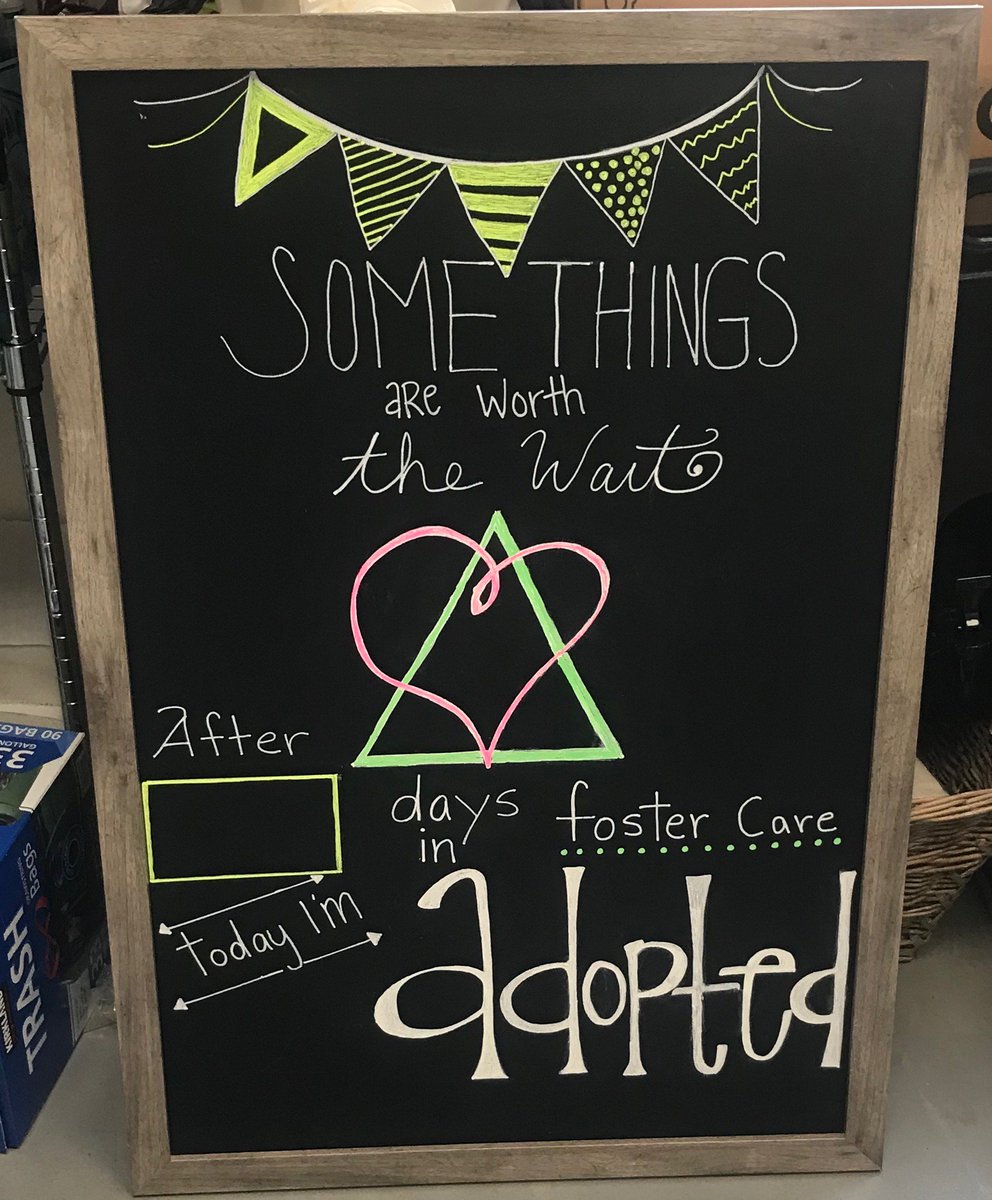 SOME THINGS
aRe worth
the Wait
After
days
in
foster Care
Today I'm
adopted
90 BAGS
33
GALLON
Bags
TRASH
KIRKLAND